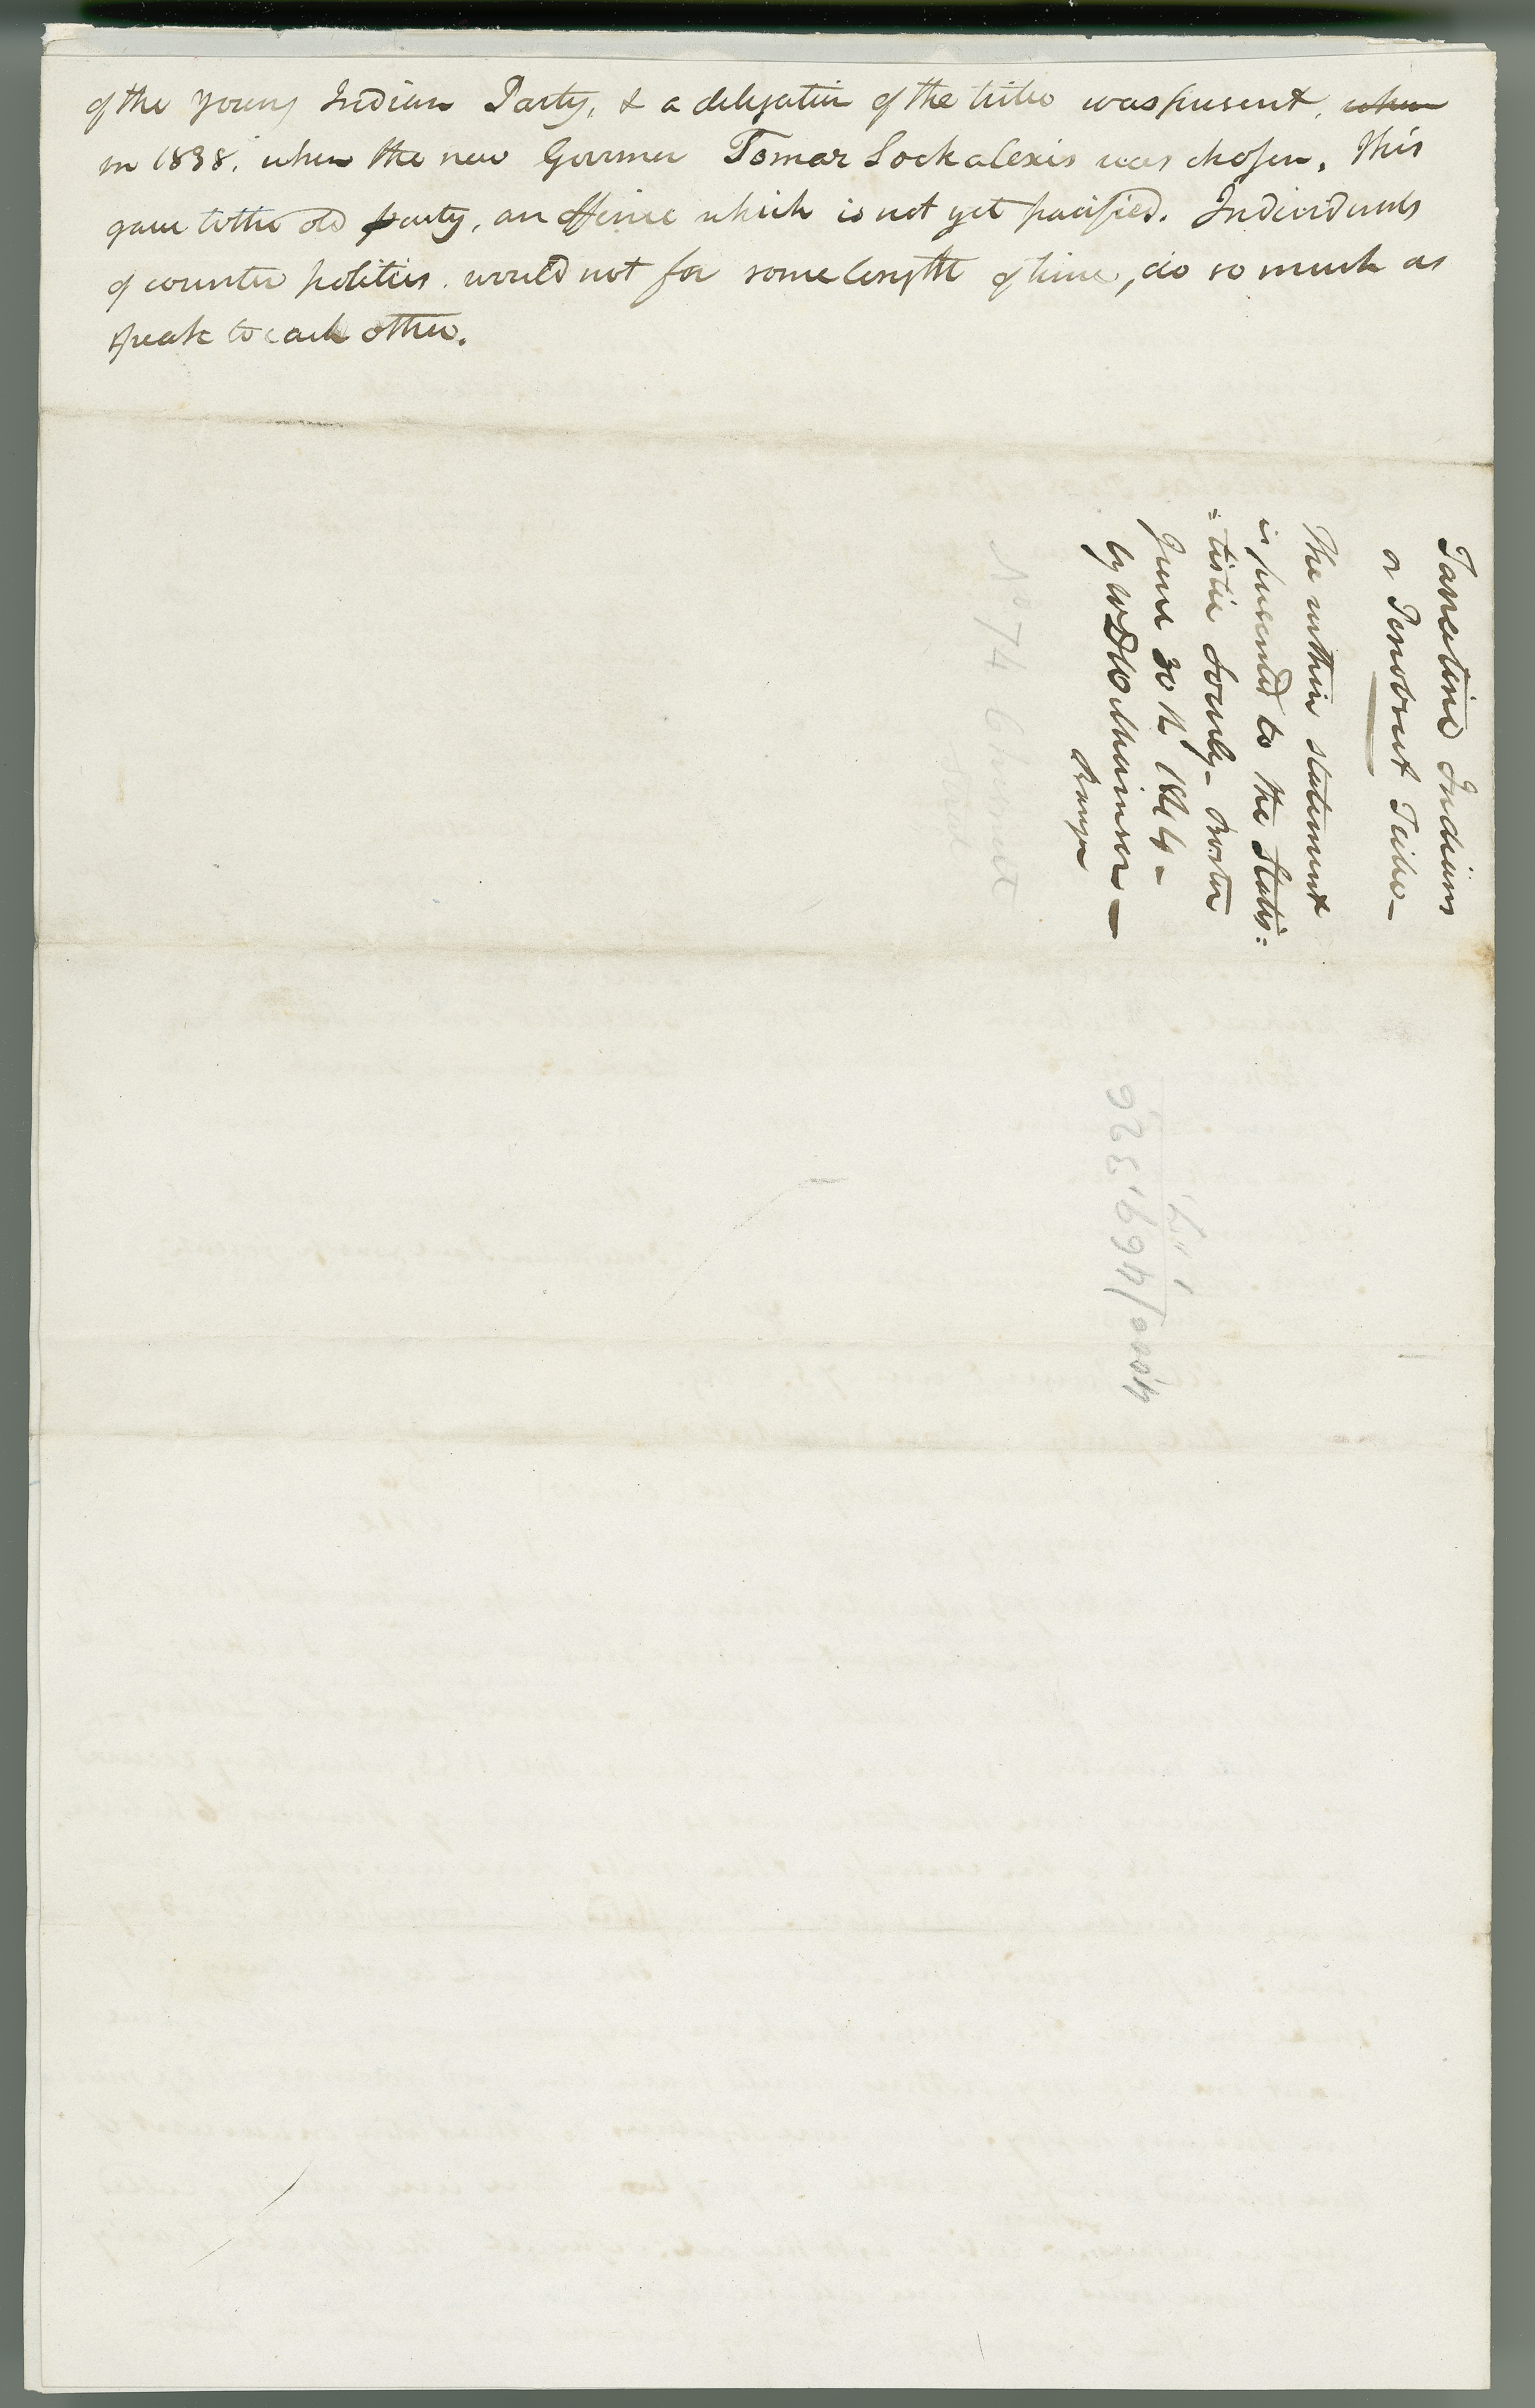 of the young Indian Party, & a delegation of the tribe was present, when
in 1838, when the new Governor Tomar Sockalexis was chosen. This
gave to the old party, an offence which is not yet pacified. Individuals
of counter politics would not for some length of time, do so much as
speak to each other.
Tarratine Indians
or Penobscot Tribe—
The within statement
is presented to the Statis:
:tistic Society - Boston
June 30th 1844 -
by WD Williamson —
Bangor
No 74 Chesnut
4,000/469,326